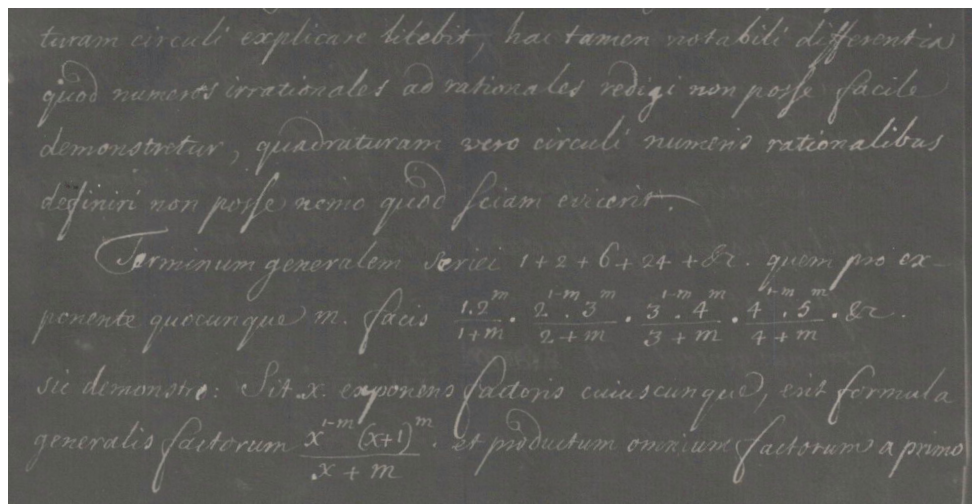 turam circuli explicare licebit, hac tamen notabili differentia
quod numeros irrationales ad rationales redigi non posse facile
demonstretur, quadraturam vero circuli numeris rationalibus
definiri non posse nemo quod sciam evicerit.
Terminum generalem seriei 1+2+6+24+&c. quem pro ex-
ponente quocunque m. facis \frac{1.2^m}{1+m} . \frac{2^{1-m}.3^m}{2+m} . \frac{3^{1-m}.4^m}{3+m} . \frac{4^{1-m}.5^m}{4+m} . &c.
sic demonstro: Sit x. exponens factoris cuiuscunque, erit formula
generalis factorum \frac{x^{1-m} (x+1)^m}{x+m}. et productum omnium factorum a primo